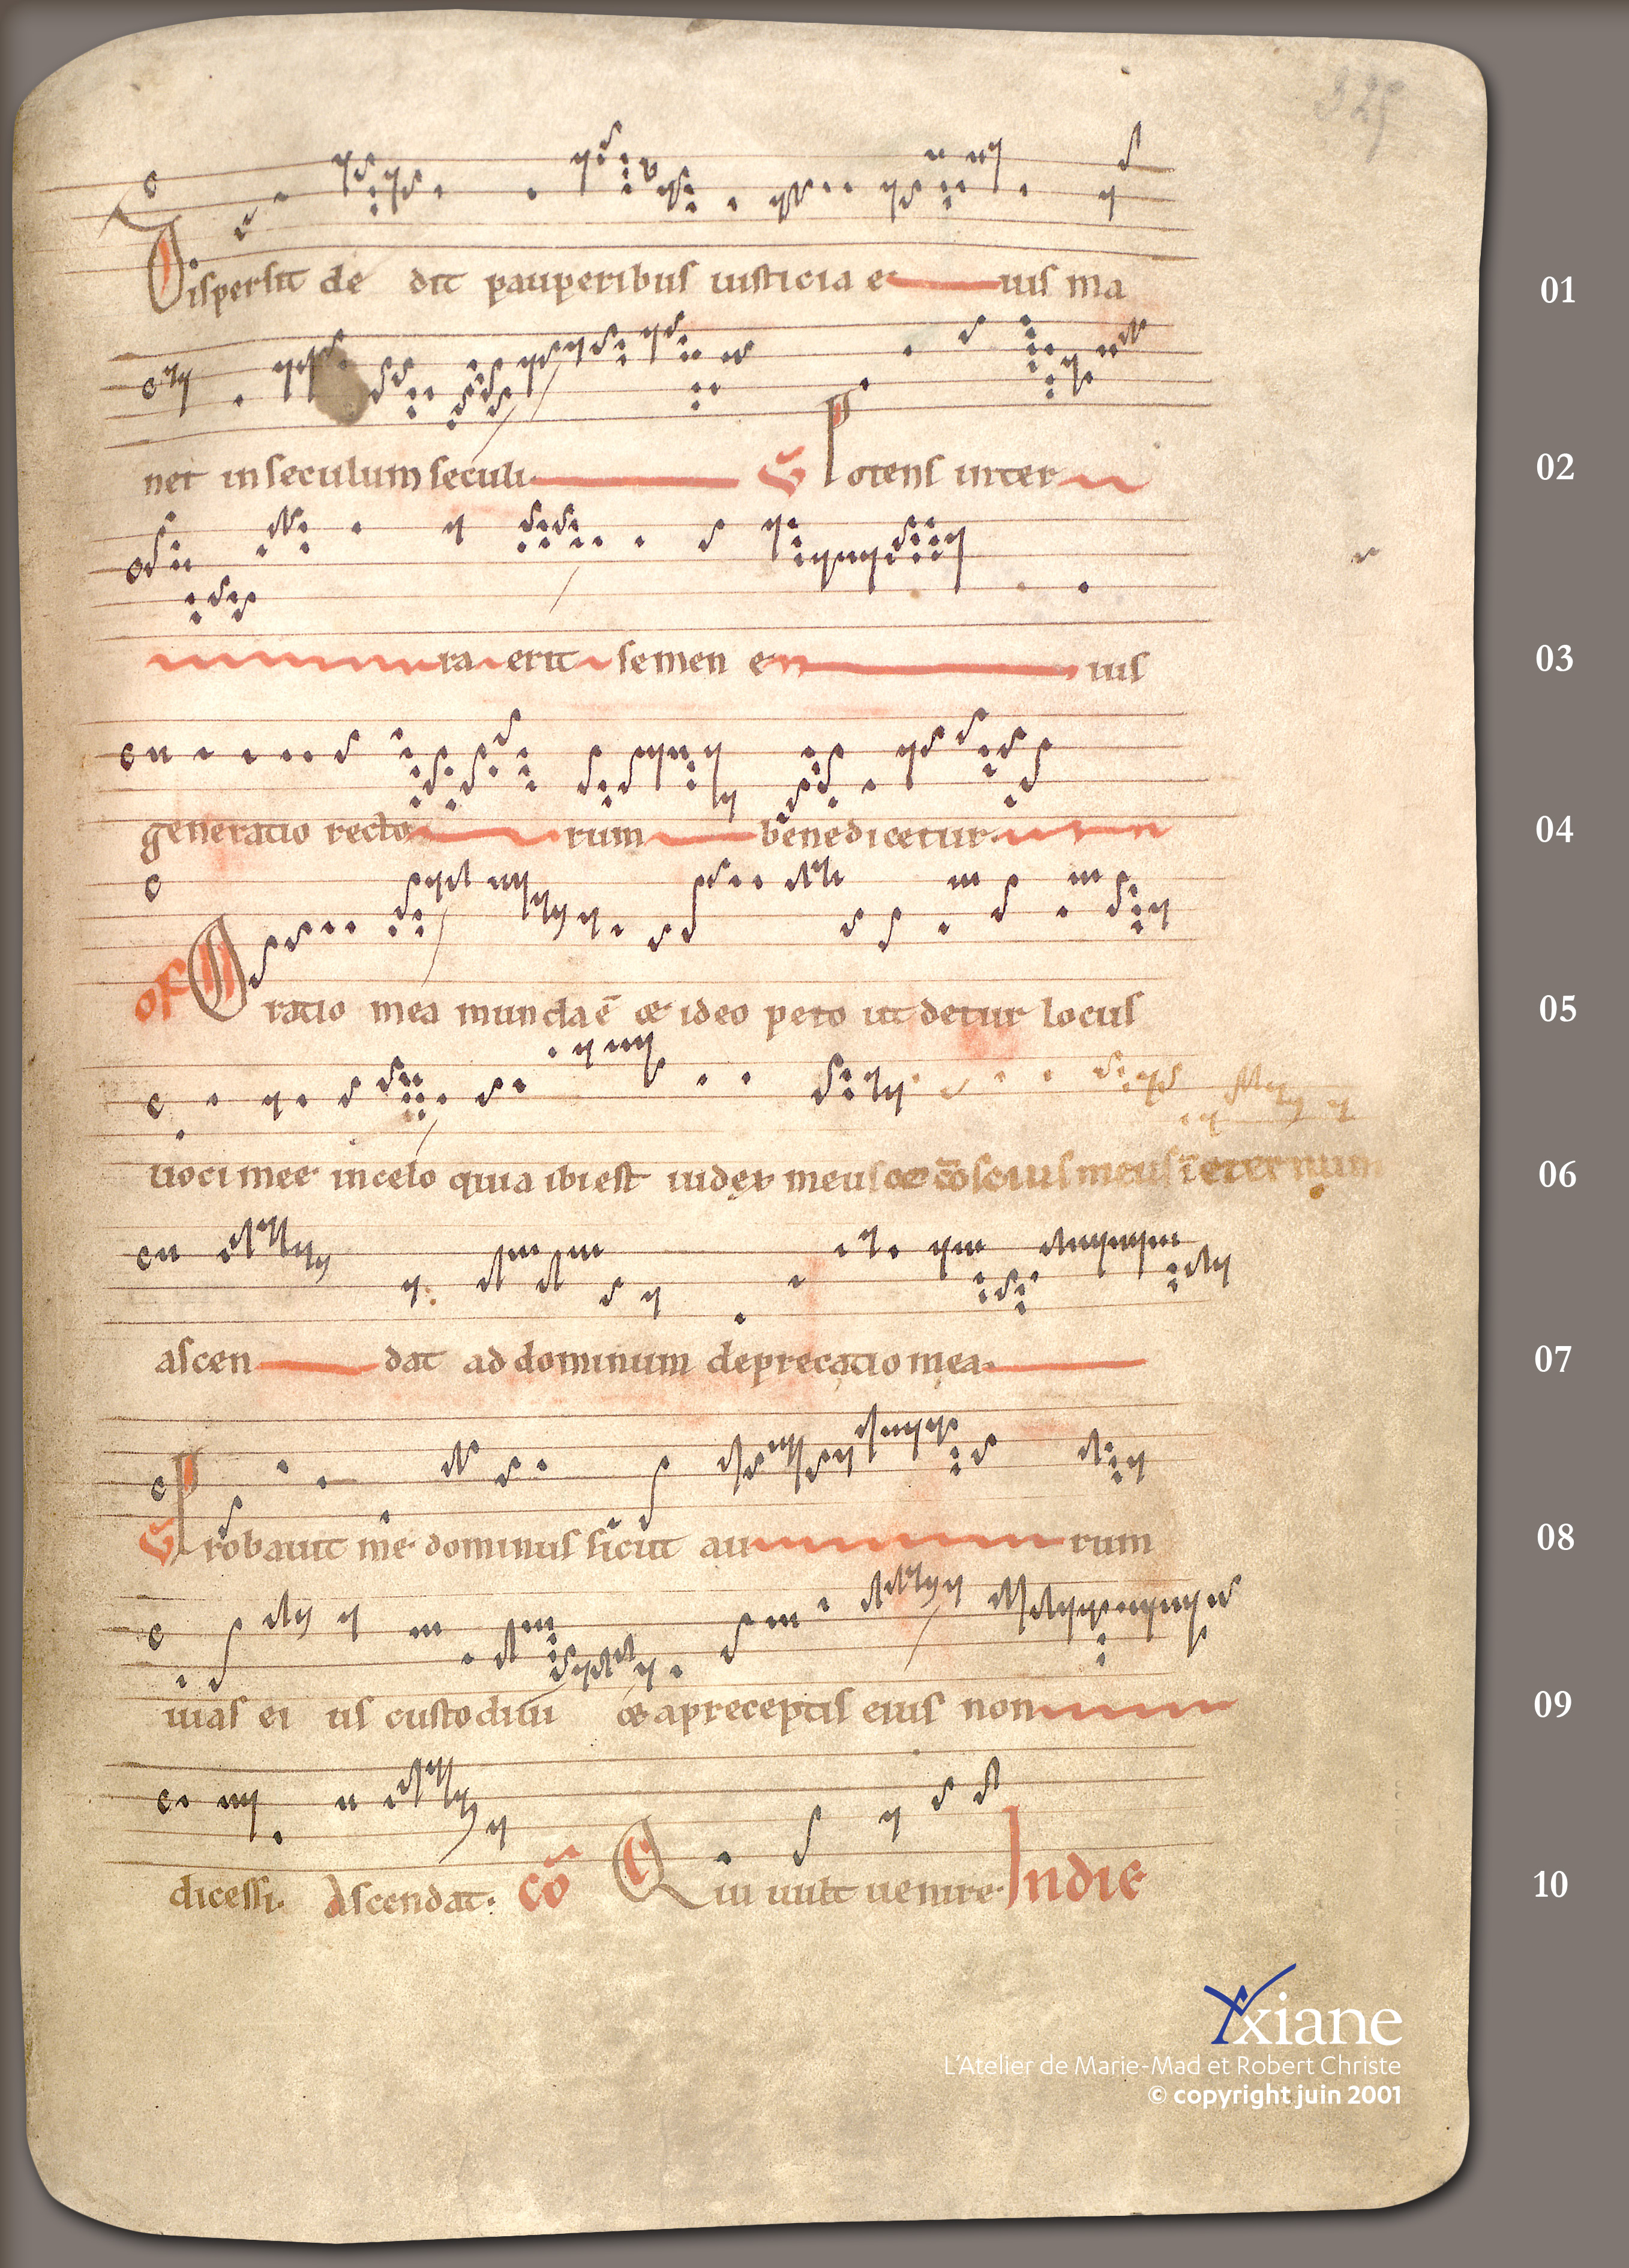 325
Dispersit de dit pauperibus iusticia e uis ma 01
net in seculum seculi. V̄ Potens in ter 02
ra erit semen e ius 03
generatio recto rum benedicetur. 04
of Oratio mea munda ē & ideo peto ut detur locus 05
uoci mee in celo quia ibi est iudex meus & cōscius meus ī eternum 06
ascen dat ad dominum deprecatio mea. 07
V̄ Probauit me dominus sicut au rum 08
uias ei us custodiui & a preceptis eius non 09
dicessi. Ascendat. cō Qui uult uenire. In die 10
Yxiane
L'Atelier de Marie-Mad et Robert Christe
© copyright juin 2001